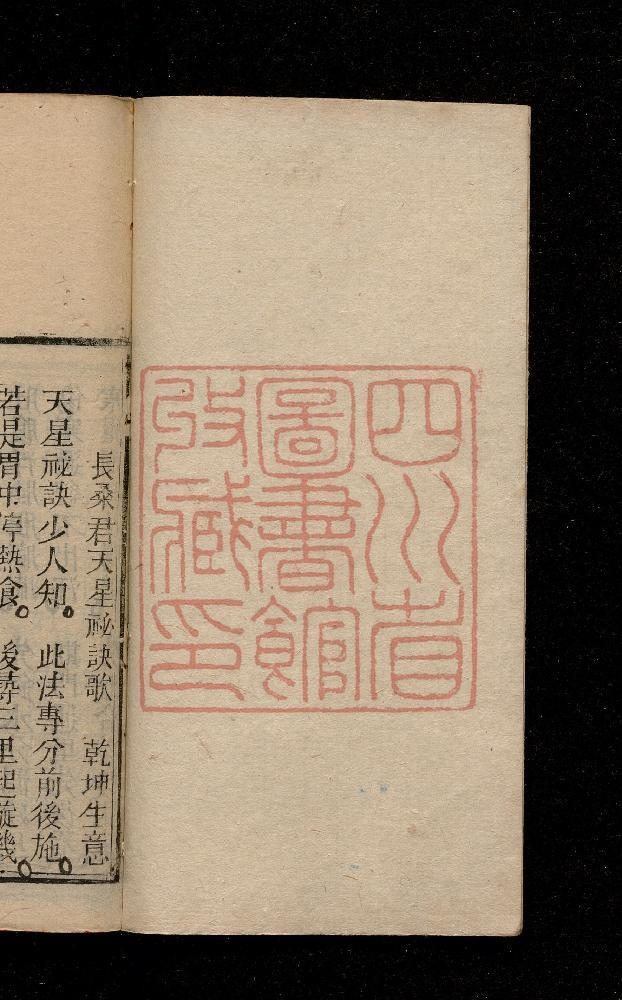 四川省
圖書館
收藏印
長桑君天星祕訣歌　乾坤生意
天星祕訣少人知。　此法專分前後施。
若是胃中停熱食。　後尋三里起璇璣。